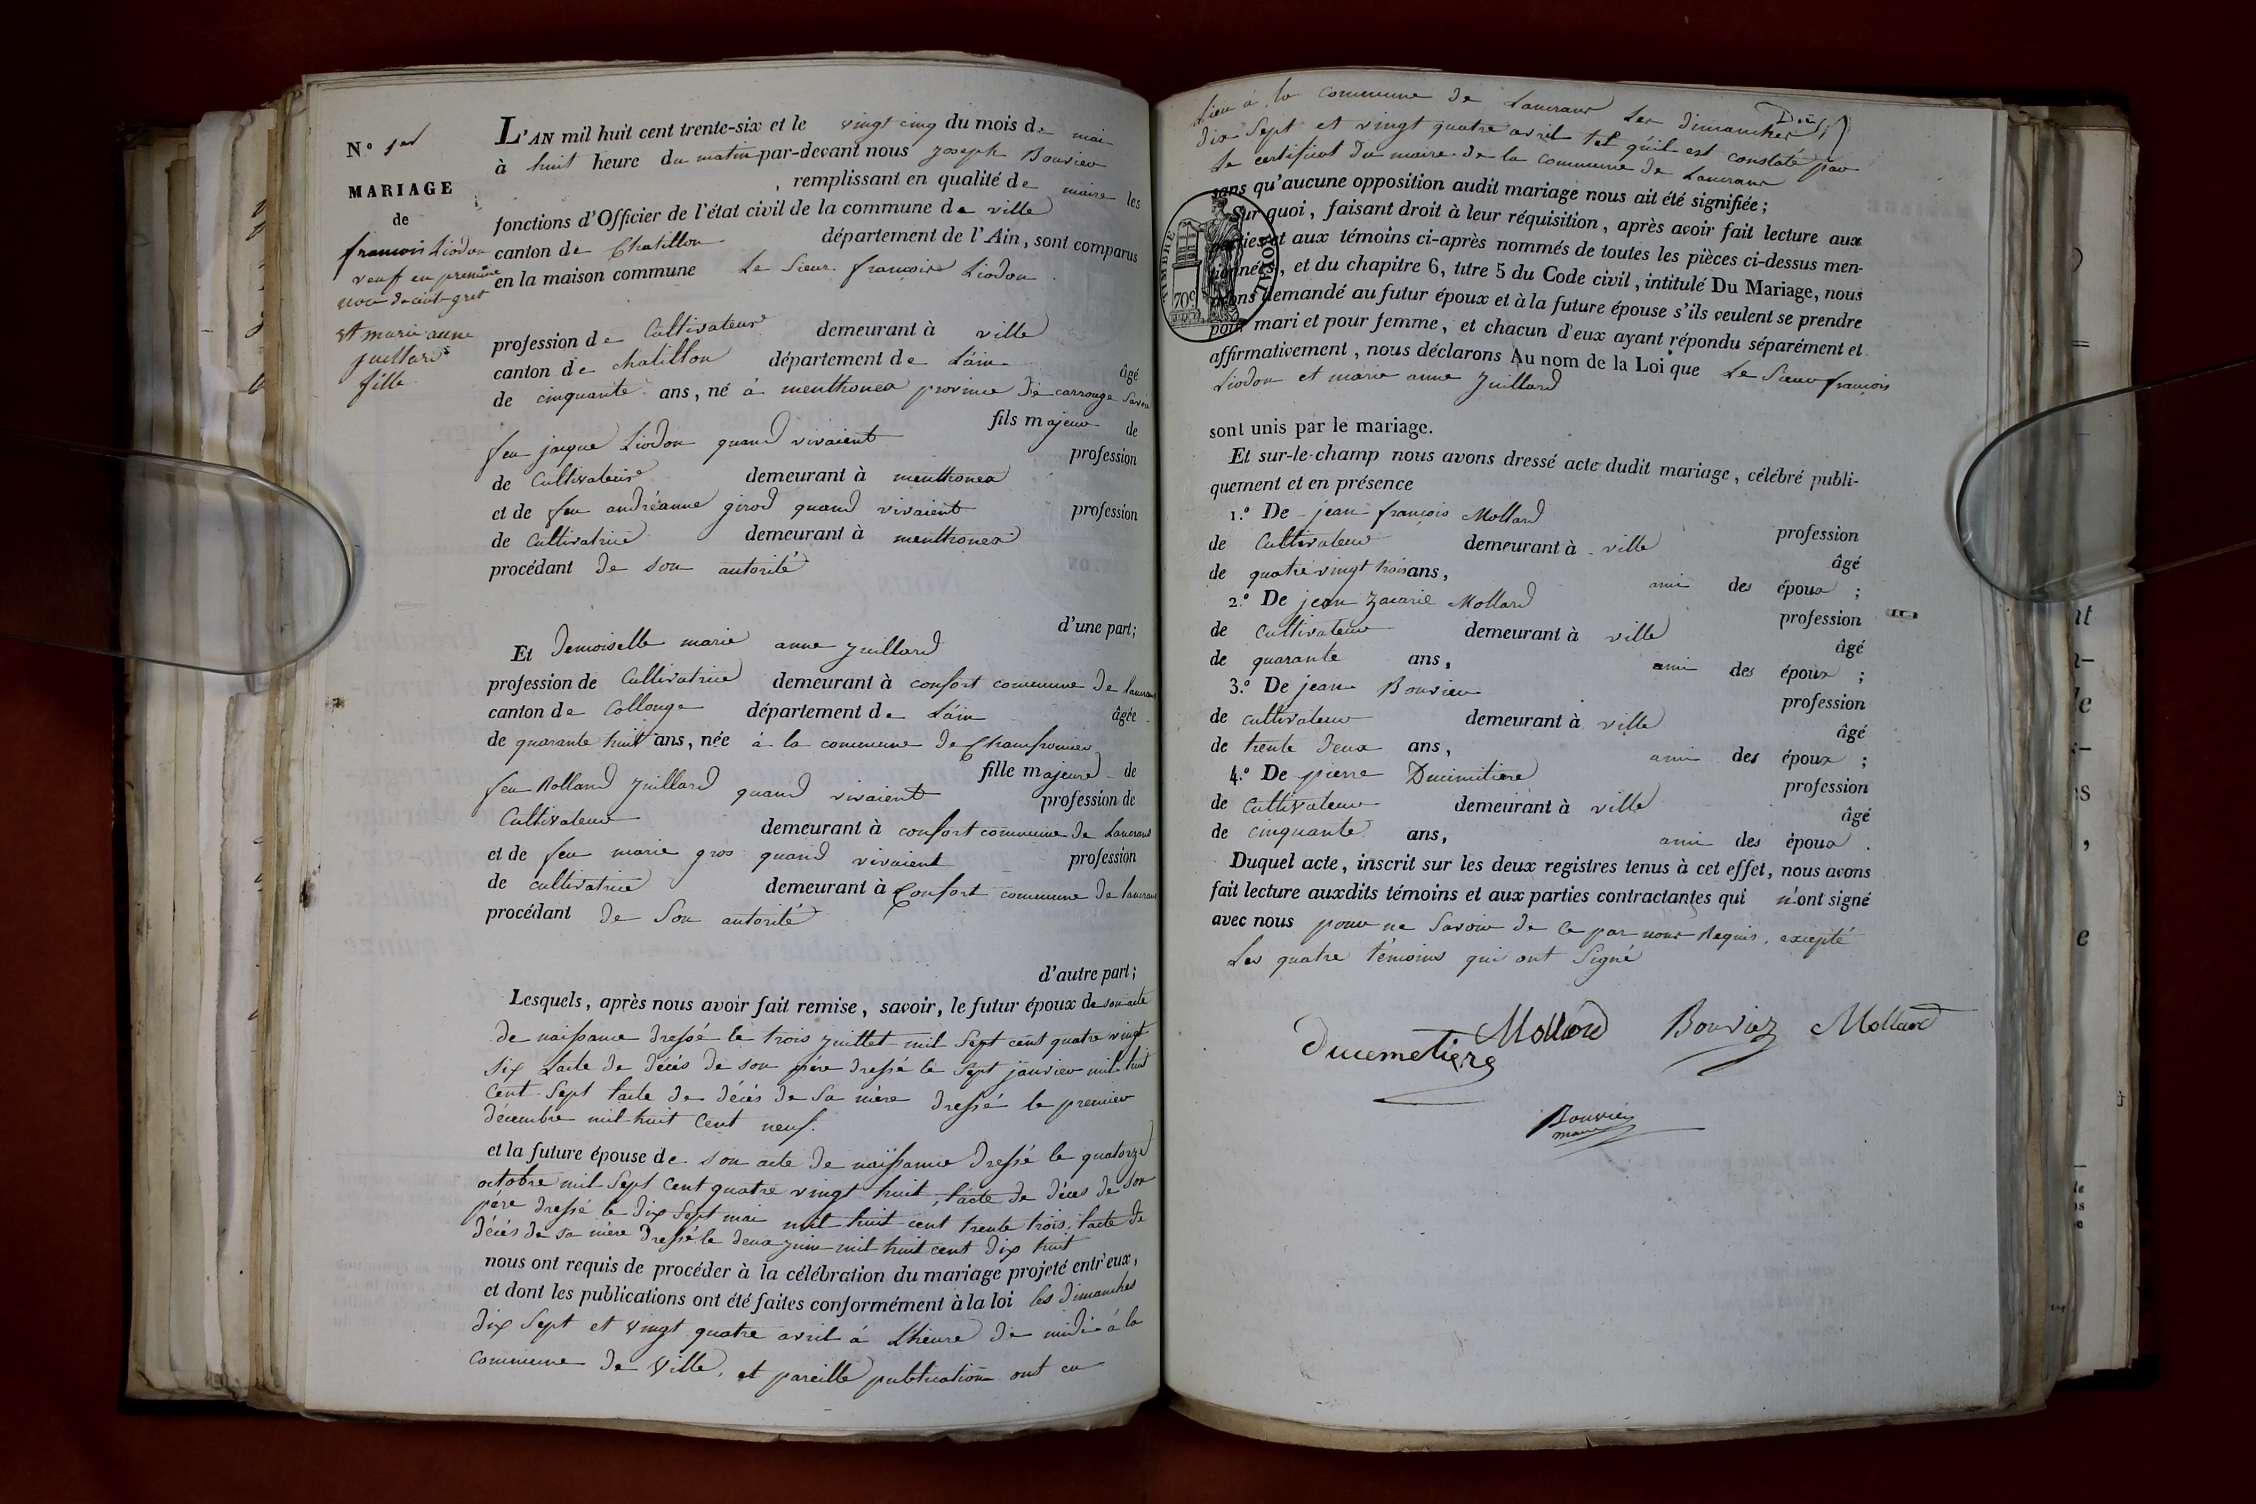 N.° 1er
MARIAGE
de
francois Liodon
veuff en premiere
et marie anne
juillard
fille
L'AN mil huit cent trente-six et le vingt cinq du mois de mai
à huit heure du matin par-devant nous joseph Bouvier
remplissant en qualité de maire les
fonctions d'Officier de l'état civil de la commune de ville
canton de Chatillon département de l'Ain, sont comparus
en la maison commune Le Sieur françois Liodon
profession de Cultivateur demeurant à ville
canton de chatillon département de L'ain âgé
de cinquante ans, né à menthonex province de carrouge Savoie
fils majeur de
feu jacque Liodon quand vivaient profession
de Cultivateur demeurant à menthonex
et de feu andréanne girod quand vivaient profession
de Cultivatrice demeurant à menthonex
procédant de son autorité
d'une part;
Et Demoiselle marie anne juillard
profession de Cultivatrice demeurant à confort commune de lancrans
canton de Collonge département de L'ain âgée
de quarante huit ans, née à la commune de Champfromier
fille majeure de
feu Rolland juillard quand vivaient profession de
Cultivateur demeurant à confort commune de Lancrans
et de feu marie gros quand vivaient profession
de cultivatrice demeurant à Confort commune de lancrans
procédant de Son autorité
d'autre part;
Lesquels, après nous avoir fait remise, savoir, le futur époux de son acte
de naissance dressé le trois juillet mil Sept cent quatre vingt
six Lacte de décés de son père dressé le Sept janvier mil huit
Cent Sept lacte de décés de Sa mère dressé le premier
décembre mil huit Cent neuf.
et la future épouse de son acte de naissance dressé le quatorze
octobre mil Sept Cent quatre vingt huit, lacte de déces de Son
père dressé le dix Sept mai mil huit cent trente trois, lacte de
décés de sa mère dressé le deux juin mil huit cent dix huit
nous ont requis de procéder à la célébration du mariage projeté entr'eux,
et dont les publications ont été faites conformément à la loi les dimanches
dix Sept et vingt quatre avril à Lheure de midi à la
Commune de Ville, et pareille publication ont eu
Lieu à la Commune de Lancrans Les dimanches
dix Sept et vingt quatre avril tel qu'il est constaté par
Le certificat du maire de la commune de Lancrans
sans qu'aucune opposition audit mariage nous ait été signifiée;
Sur quoi, faisant droit à leur réquisition, après avoir fait lecture aux
parties et aux témoins ci-après nommés de toutes les pièces ci-dessus men-
tionnées, et du chapitre 6, titre 5 du Code civil, intitulé Du Mariage, nous
avons demandé au futur époux et à la future épouse s'ils veulent se prendre
pour mari et pour femme, et chacun d'eux ayant répondu séparément et
affirmativement, nous déclarons Au nom de la Loi que Le Sieur françois
Liodon et marie anne juillard
TIMBRE ROYAL
70c
sont unis par le mariage.
Et sur-le-champ nous avons dressé acte dudit mariage, célébré publi-
quement et en présence
1.° De jean françois Mollard
profession
de Cultivateur demeurant à ville
âgé
de quatre vingt trois ans, ami des époux ;
2.° De jean Zacarie Mollard
profession
de Cultivateur demeurant à ville
âgé
de quarante ans, ami des époux ;
3.° De jean Bouvier
profession
de cultivateur demeurant à ville
âgé
de trente deux ans, ami des époux ;
4.° De pierre Ducimitiere
profession
de Cultivateur demeurant à ville
âgé
de cinquante ans, ami des époux .
Duquel acte, inscrit sur les deux registres tenus à cet effet, nous avons
fait lecture auxdits témoins et aux parties contractantes qui n'ont signé
avec nous pour ne Savoir de Ce par nous Requis, excepté
Les quatre témoins qui ont Signé
ducemetiere Mollard Bouvier Mollard
Bouvier
maire